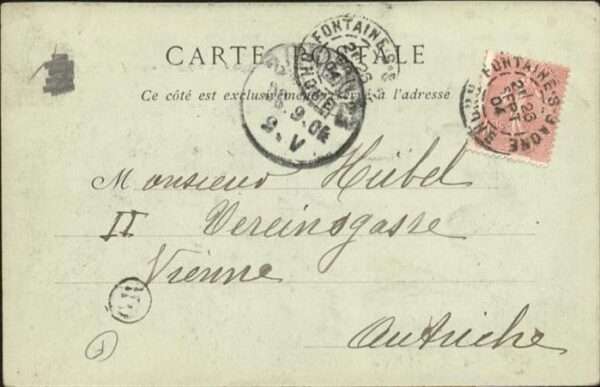 CARTE POSTALE
Ce côté est exclusivement réservé à l'adresse
FONTAINES-S-
RHONE
FONTAINES-S-RHONE
26
SEPT
04
9.04
2.V
Monsieur Hübel
II Vereinsgasse
Vienne
Autriche